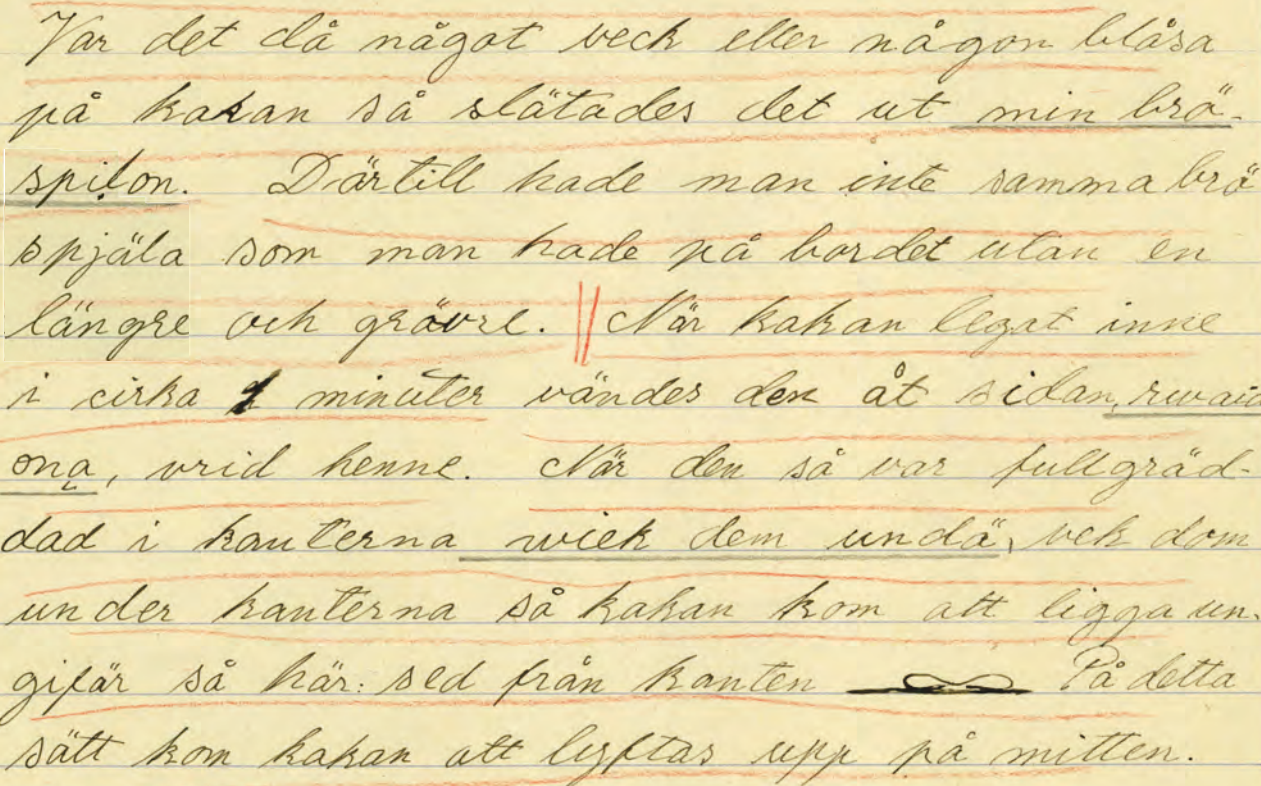 Var det då något veck eller någon blåsa
på kakan så slätades det ut min brö-
spiłon. Därtill hade man inte samma brö
spjäla som man hade på bordet utan en
längre och grövre. || När kakan legat inne
i cirka minuter vändes den åt sidan,
ona, vrid henne. När den så var fullgräd-
dad i kanterna wiek dem undä, vek dom
under kanterna så kakan kom att ligga un-
gifär så här: sed från kanten På detta
sätt kom kakan att lyftas upp på mitten.